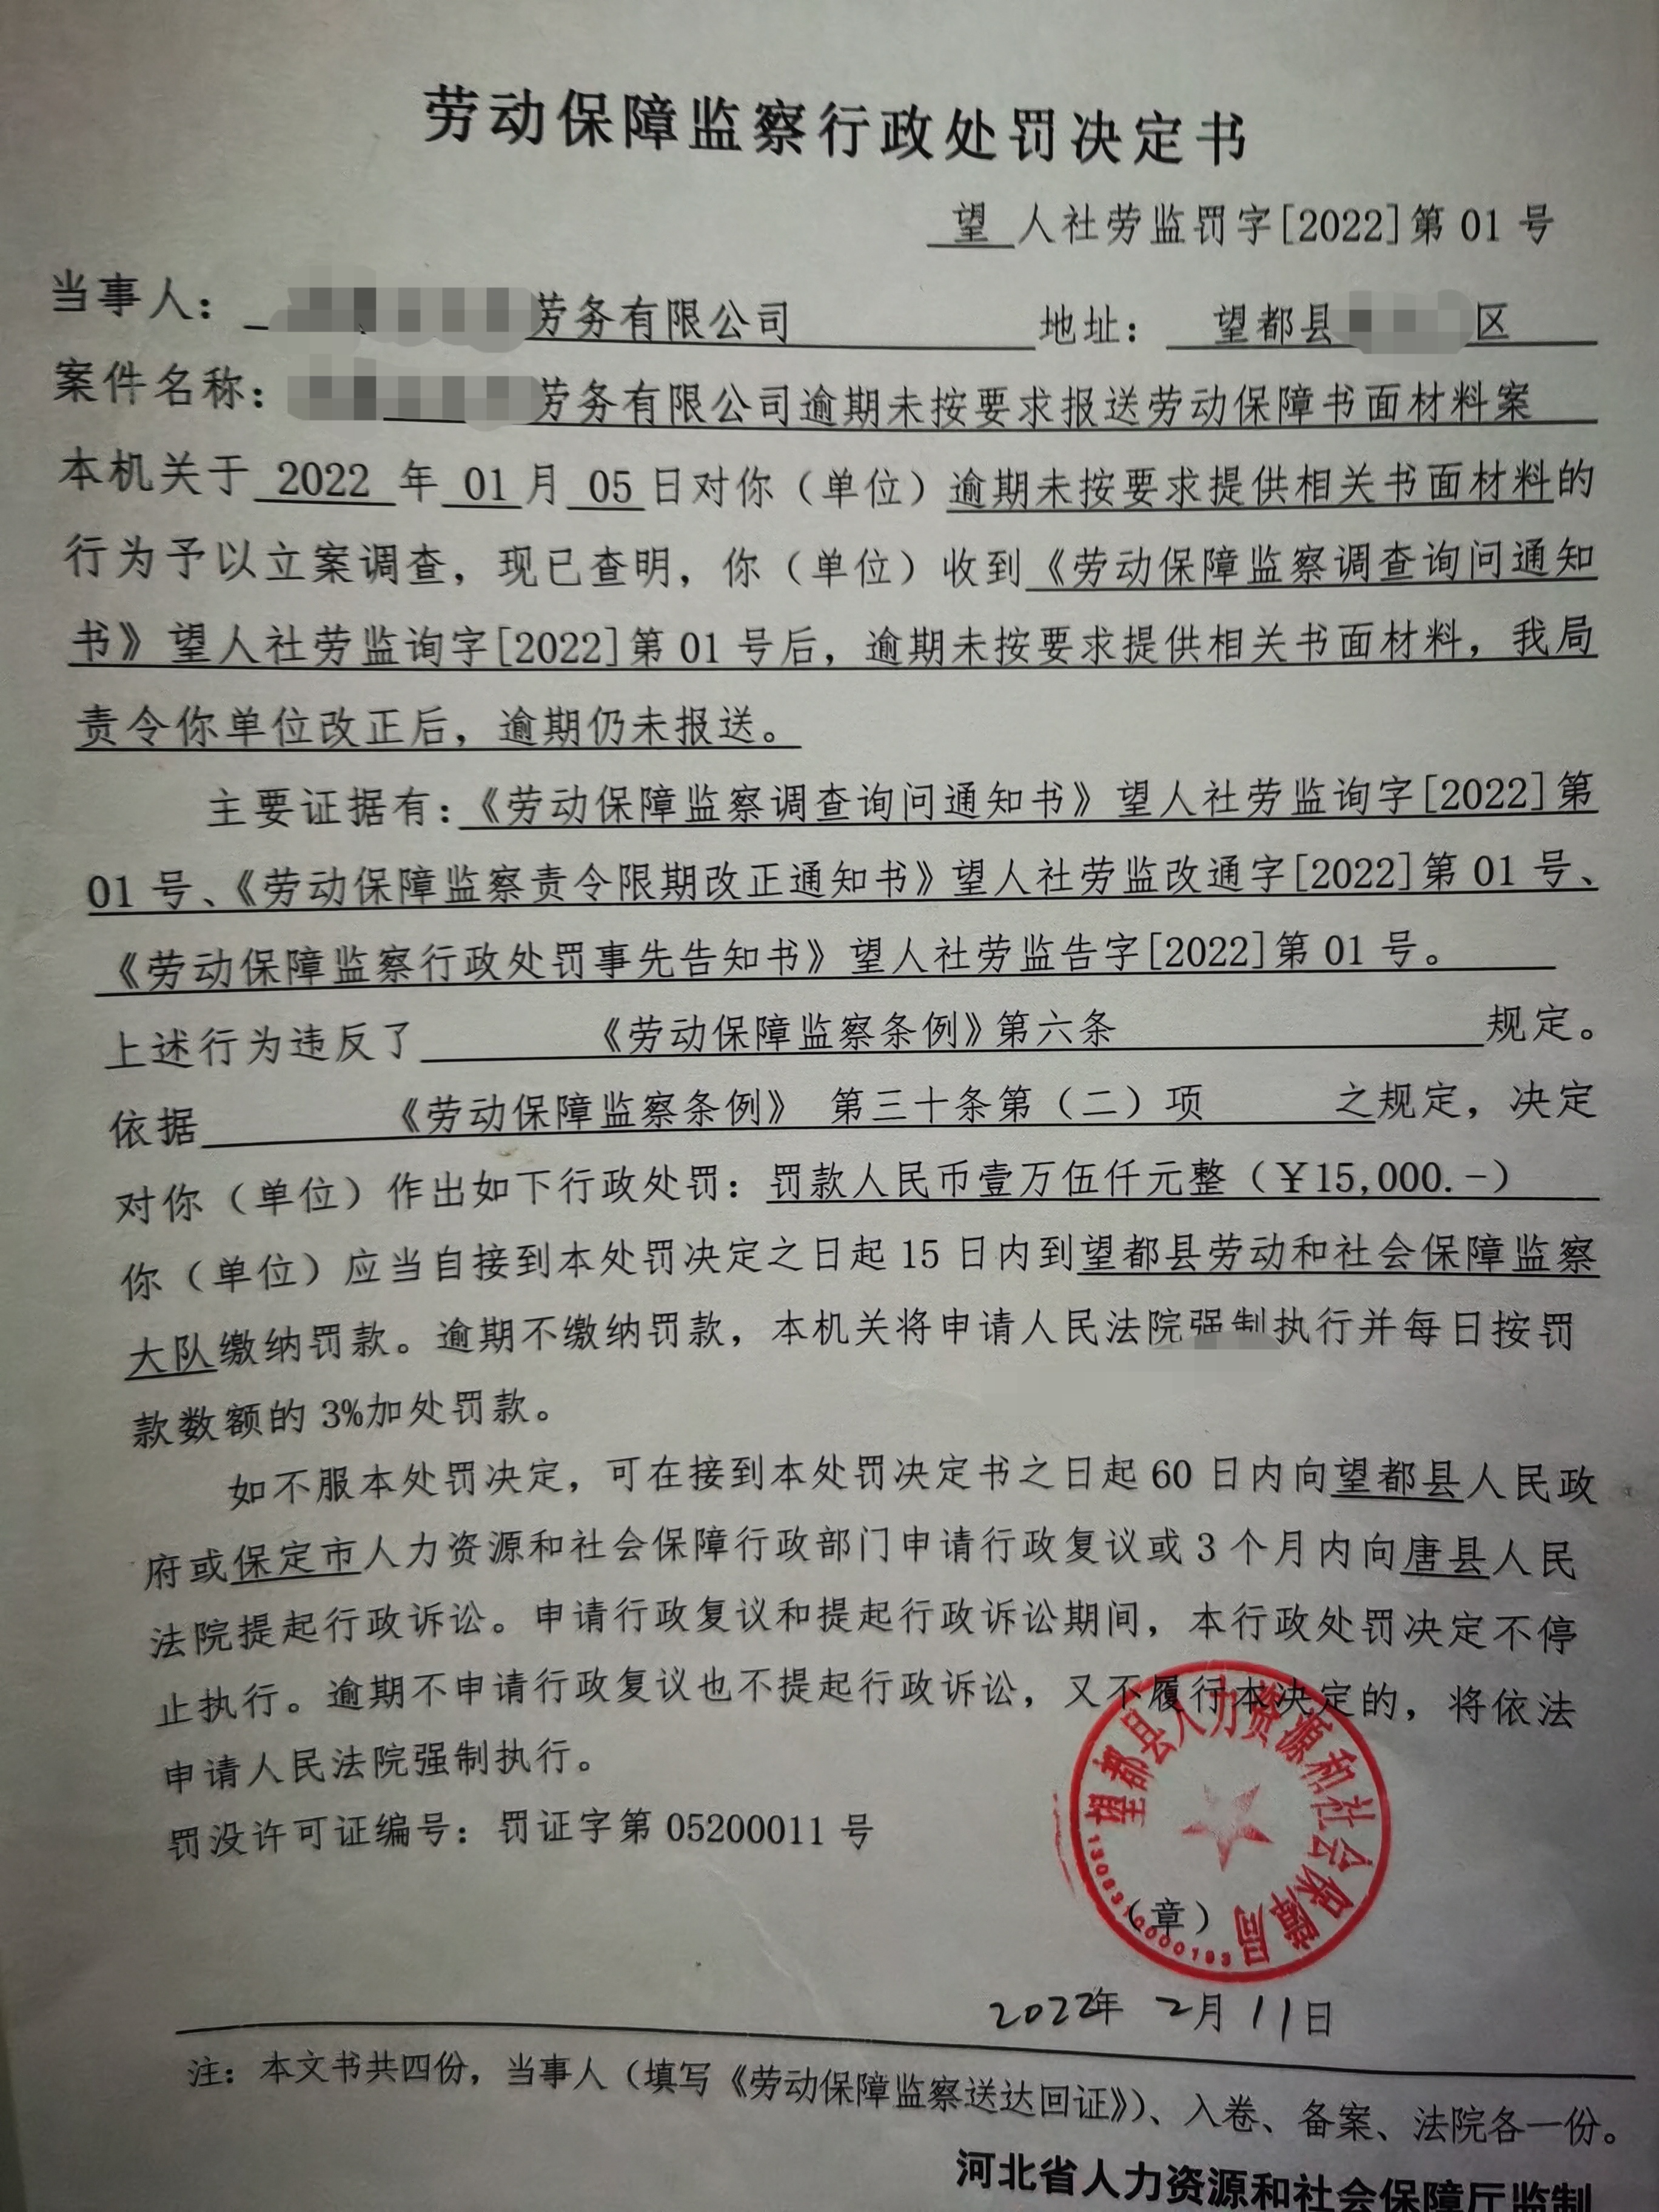 劳动保障监察行政处罚决定书
望 人社劳监罚字[2022]第 01 号
当事人： 劳务有限公司 地址： 望都县 区
案件名称： 劳务有限公司逾期未按要求报送劳动保障书面材料案
本机关于 2022 年 01 月 05 日对你（单位）逾期未按要求提供相关书面材料的
行为予以立案调查，现已查明，你（单位）收到《劳动保障监察调查询问通知
书》望人社劳监询字[2022]第 01 号后，逾期未按要求提供相关书面材料，我局
责令你单位改正后，逾期仍未报送。
主要证据有：《劳动保障监察调查询问通知书》望人社劳监询字[2022]第
01 号、《劳动保障监察责令限期改正通知书》望人社劳监改通字[2022]第 01 号、
《劳动保障监察行政处罚事先告知书》望人社劳监告字[2022]第 01 号。
上述行为违反了 《劳动保障监察条例》第六条 规定。
依据 《劳动保障监察条例》 第三十条第（二）项 之规定，决定
对你（单位）作出如下行政处罚：罚款人民币壹万伍仟元整（￥15,000.-）
你（单位）应当自接到本处罚决定之日起 15 日内到望都县劳动和社会保障监察
大队缴纳罚款。逾期不缴纳罚款，本机关将申请人民法院强制执行并每日按罚
款数额的 3%加处罚款。
如不服本处罚决定，可在接到本处罚决定书之日起 60 日内向望都县人民政
府或保定市人力资源和社会保障行政部门申请行政复议或 3 个月内向唐县人民
法院提起行政诉讼。申请行政复议和提起行政诉讼期间，本行政处罚决定不停
止执行。逾期不申请行政复议也不提起行政诉讼，又不履行本决定的，将依法
申请人民法院强制执行。
罚没许可证编号：罚证字第 05200011 号
望都县人力资源和社会保障局
（章）
2022年 2月 11日
注：本文书共四份，当事人（填写《劳动保障监察送达回证》）、入卷、备案、法院各一份。
河北省人力资源和社会保障厅监制